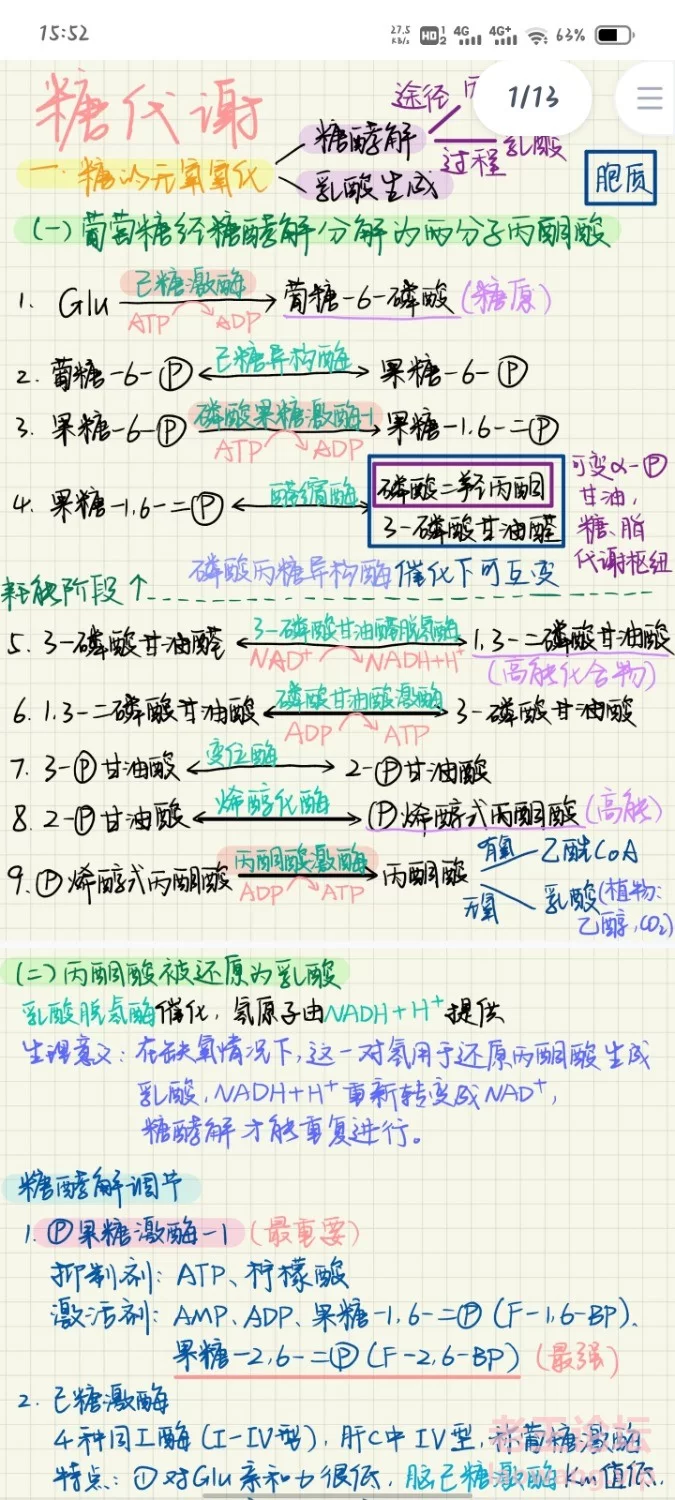 15:52
27.5 KB/s HD 1 2 4G 4G+ 63%
1/13
糖代谢
途径
一.糖的无氧氧化
糖酵解
过程 乳酸
乳酸生成
胞质
(一)葡萄糖经糖酵解分解为两分子丙酮酸
1. Glu 己糖激酶 ATP ADP 葡糖-6-磷酸(糖原)
2. 葡糖-6-Ⓟ 己糖异构酶 果糖-6-Ⓟ
3. 果糖-6-Ⓟ 磷酸果糖激酶-1 ATP ADP 果糖-1.6-二Ⓟ
4. 果糖-1,6-二Ⓟ 醛缩酶 磷酸二羟丙酮
3-磷酸甘油醛
可变α-Ⓟ
甘油,
糖、脂
代谢枢纽
磷酸丙糖异构酶催化下可互变
耗能阶段↑
5. 3-磷酸甘油醛 3-磷酸甘油醛脱氢酶 NAD⁺ NADH+H⁺ 1,3-二磷酸甘油酸
(高能化合物)
6. 1.3-二磷酸甘油酸 磷酸甘油酸激酶 ADP ATP 3-磷酸甘油酸
7. 3-Ⓟ甘油酸 变位酶 2-Ⓟ甘油酸
8. 2-Ⓟ甘油酸 烯醇化酶 Ⓟ烯醇式丙酮酸(高能)
9. Ⓟ烯醇式丙酮酸 丙酮酸激酶 ADP ATP 丙酮酸
有氧 乙酰CoA
无氧 乳酸(植物:
乙醇,CO₂)
(二)丙酮酸被还原为乳酸
乳酸脱氢酶催化,氢原子由NADH+H⁺提供
生理意义:在缺氧情况下,这一对氢用于还原丙酮酸生成
乳酸,NADH+H⁺重新转变成NAD⁺,
糖酵解才能重复进行。
糖酵解调节
1. Ⓟ果糖激酶-1(最重要)
抑制剂:ATP、柠檬酸
激活剂:AMP、ADP、果糖-1,6-二Ⓟ(F-1,6-BP)、
果糖-2,6-二Ⓟ(F-2,6-BP)(最强)
2. 己糖激酶
4种同工酶(I-IV型),肝C中IV型,称葡糖激酶
特点:①对Glu亲和力很低,脑己糖激酶Km值低.
老王论坛